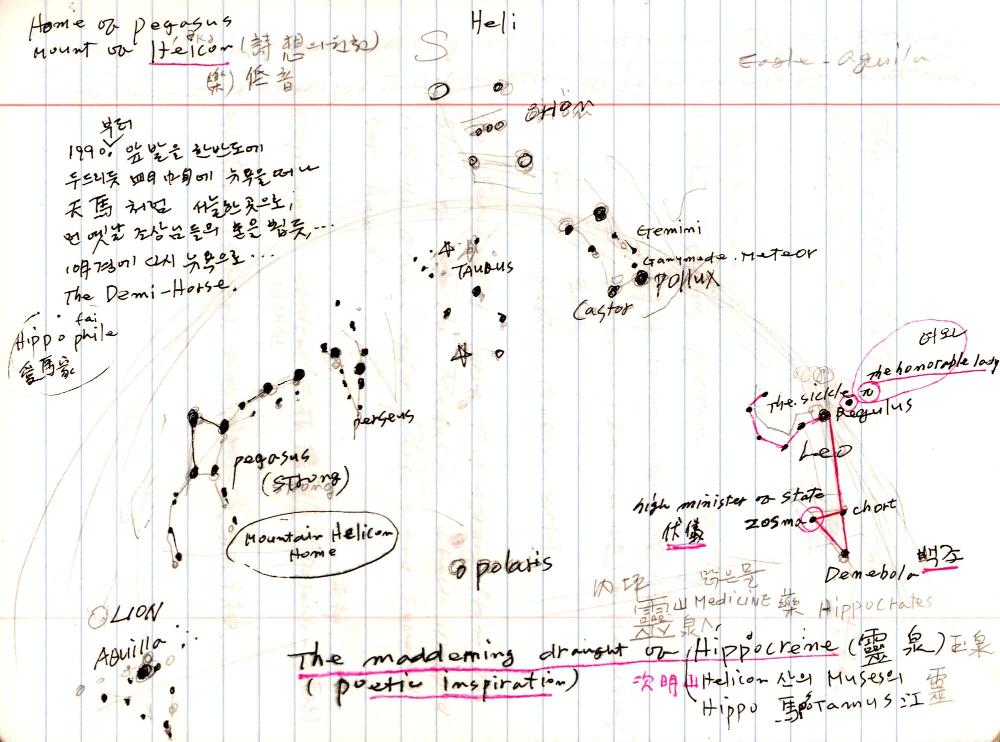 Home of pegasus
Mount of Helicon (詩想의 원천)
樂) 低音
Heli
S
Eagle - aquila
ORION
부터
1990. 앞발을 한반도에
두드리듯 四月 中旬에 뉴욕을 떠나
天馬 처럼 서늘한 곳으로,
먼 옛날 조상님들의 혼을 뵙듯,...
에 다시 뉴욕으로...
The Demi-Horse.
Hippo phile
愛馬家
Gemini
Ganymede. Meteor
POLLUX
Castor
TAURUS
perseus
pegasus
(strong)
Mountain Helicon
Home
polaris
여와
The honorable lady
The. Sickle
Regulus
Leo
high minister of state
zosma
chort
伏儀
Demebola
백조
맑은물
靈山 Medicine 藥 Hippocrates
泉
LION
Aquilla
The maddening draught of Hippocrene (靈泉) 玉泉
(poetic Inspiration)
次明山 Helicon 산의 Muses의 靈
Hippo 馬 Potamus 江